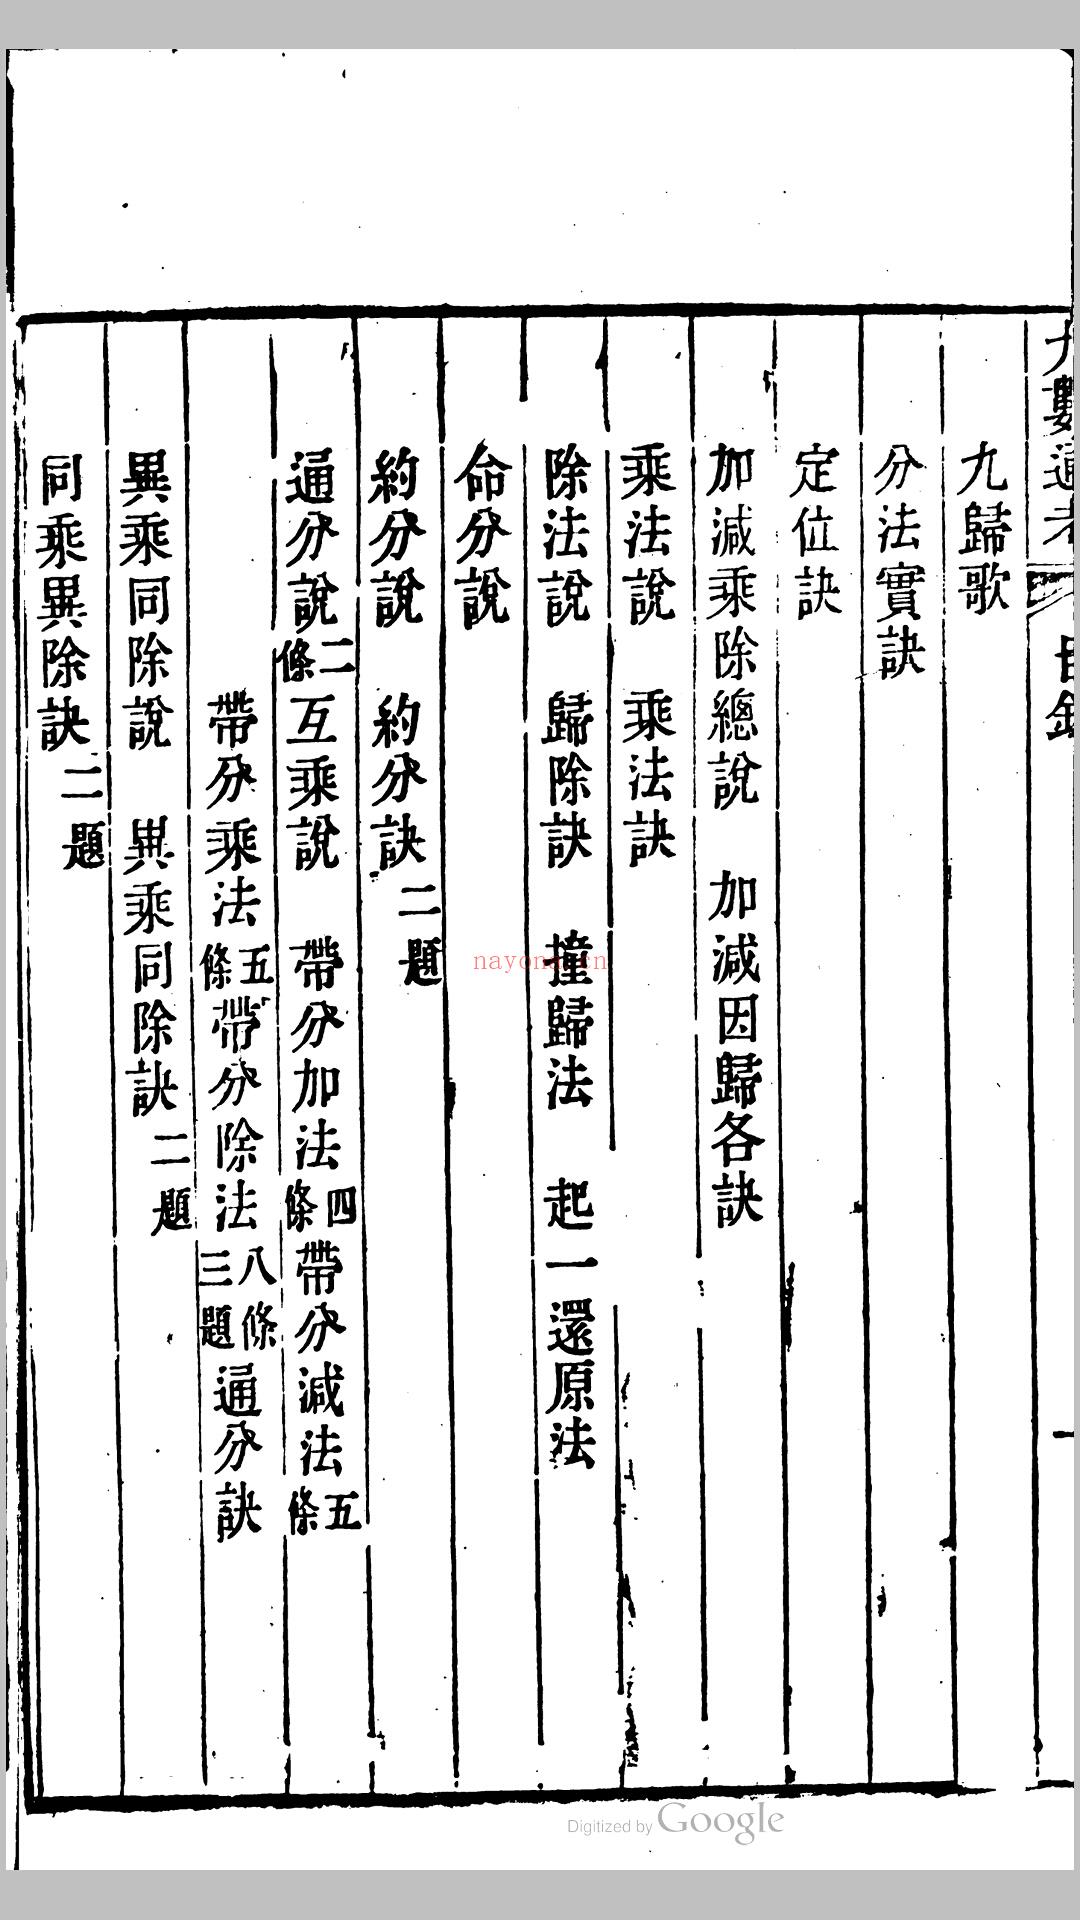 九數通考 目錄 一
九歸歌
分法實訣
定位訣
加減乘除總說 加減因歸各訣
乘法說 乘法訣
除法說 歸除訣 撞歸法 起一還原法
命分說
約分說 約分訣二題
通分說二條互乘說 帶分加法四條帶分減法五條
帶分乘法五條帶分除法八條三題通分訣
異乘同除說 異乘同除訣二題
同乘異除訣二題
nayona.cn
Digitized by Google